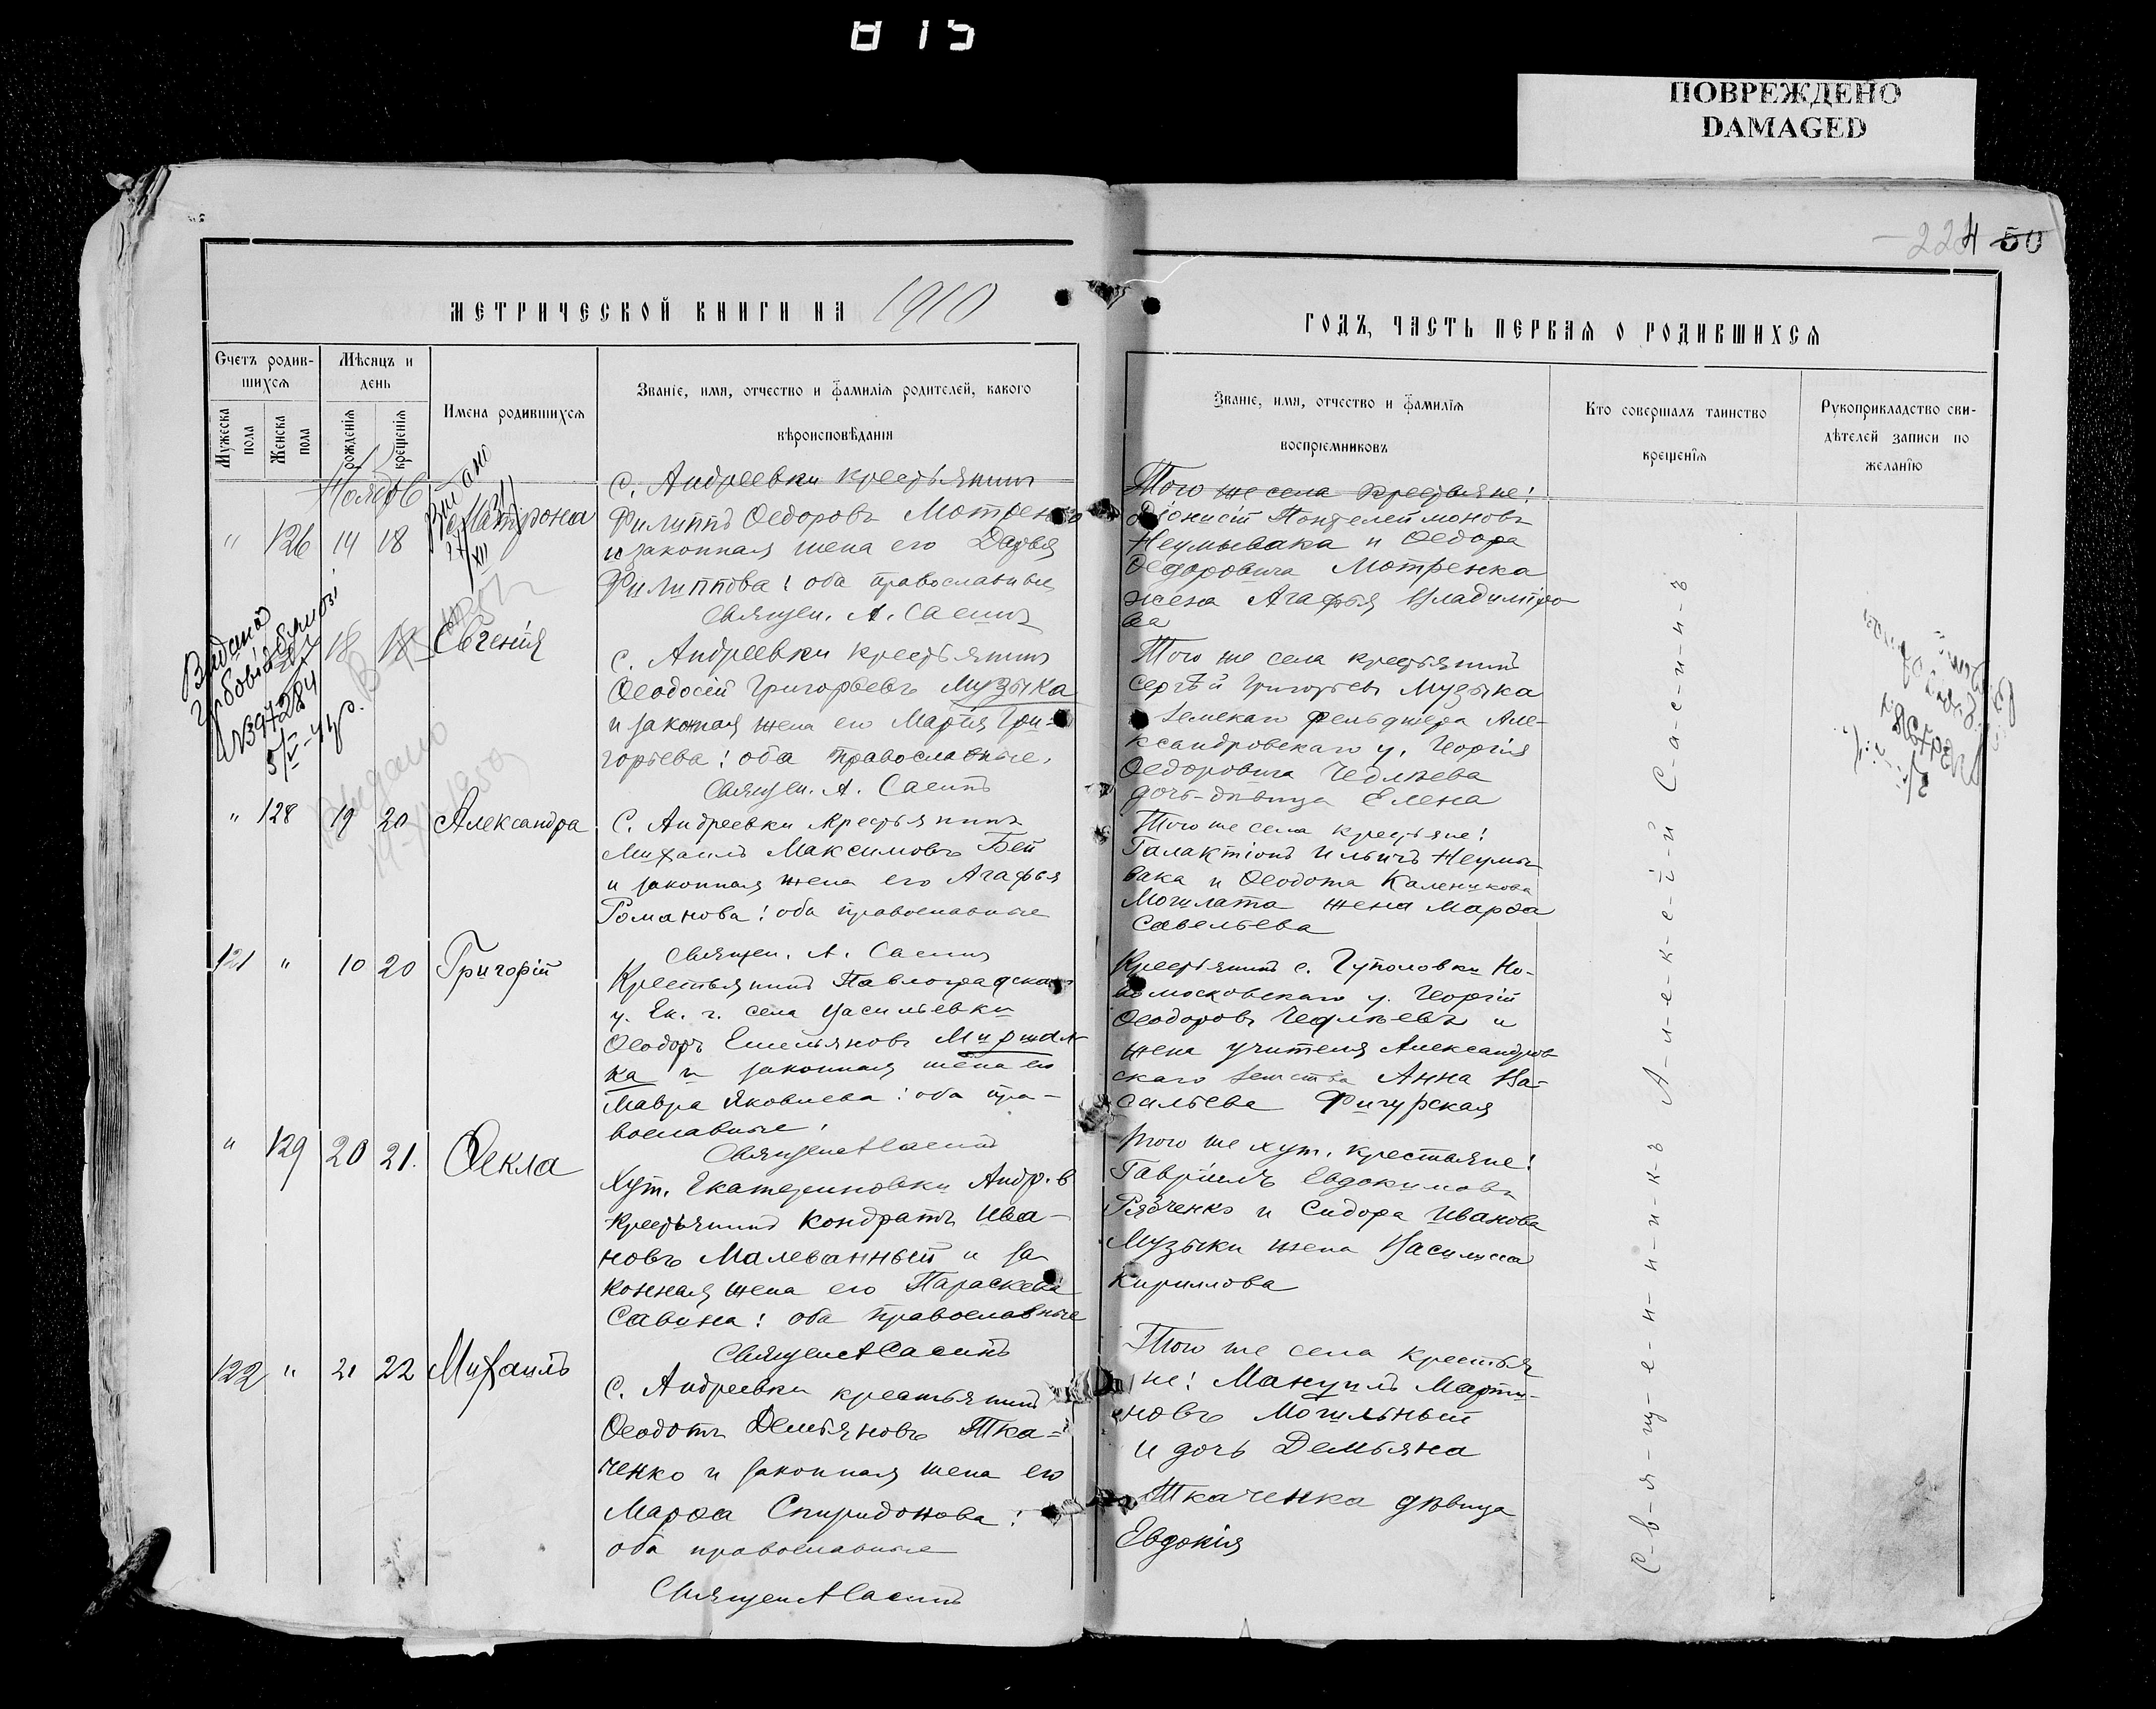 815
ПОВРЕЖДЕНО
DAMAGED
224 50
МЕТРИЧЕСКОЙ КНИГИ НА 1910
ГОДЪ, ЧАСТЬ ПЕРВАЯ О РОДИВШИХСЯ
Счетъ родив-
шихся
Мѣсяцъ и
день
Мужеска
пола
Женска
пола
рожденія
крещенія
Имена родившихся
Званіе, имя, отчество и фамилія родителей, какого
вѣроисповѣданія
Званіе, имя, отчество и фамилія
воспріемниковъ
Кто совершалъ таинство
крещенія
Рукоприкладство сви-
дѣтелей записи по
желанію
Ноябрь
" 126 14 18 Матрона
с. Андреевки крестьянинъ
Филиппъ Ѳедоровъ Мотренко
и законная жена его Дарья
Филиппова: оба православные
Священ. А. Сасинъ
Того же села крестьяне:
Діонисій Пантелеймоновъ
Неумывака и Ѳедора
Ѳедоровича Мотренка
жена Агафья Владиміро-
ва
Видано
18 18 Евгенія
с. Андреевки крестьянинъ
Ѳеодосій Григорьевъ Музыка
и законная жена его Марія Гри-
горьева: оба православные.
Священ. А. Сасинъ
Того же села крестьянинъ
Сергѣй Григорьевъ Музыка
и земскаго фельдшера Але-
ксандровскаго у. Георгія
Ѳедоровича Чеплѣева
дочь-дѣвица Елена
Видано
" 128 19 20 Александра
С. Андреевки крестьянинъ
Михаилъ Максимовъ Бей
и законная жена его Агафья
Романова: оба православные
Священ. А. Сасинъ
Того же села крестьяне:
Галактіонъ Ильичъ Неумы-
вака и Ѳеодота Каленикова
Могилата жена Марѳа
Савельева
121 " 10 20 Григорій
Крестьянинъ Павлоградскаго
у. Ек. г. села Васильевки
Ѳеодоръ Емельяновъ Миршал-
ка и законная жена его
Мавра Яковлева: оба пра-
вославные.
Священ А Сасинъ
Крестьянинъ с. Гуполовки Но-
вомосковскаго у. Георгій
Ѳеодоровъ Чеплѣевъ и
жена учителя Александров-
скаго земства Анна Ва-
сильева Фигурская
" 129 20 21. Ѳекла
Хут. Екатериновки Андр. в
крестьянинъ Кондратъ Ива-
новъ Малеванный и за-
конная жена его Параскева
Савина: оба православные
Священ А Сасинъ
Того же хут. крестьяне:
Гавріилъ Евдокимовъ
Рябченко и Сидора Иванова
Музыки жена Василисса
Кириллова
122 " 21 22 Михаилъ
С. Андреевки крестьянинъ
Ѳеодотъ Демьяновъ Тка-
ченко и законная жена его
Марѳа Спиридонова:
оба православные
Священ А Сасинъ
Того же села крестья-
не: Мануилъ Марти-
новъ Могильный
и дочь Демьяна
Ткаченка дѣвица
Евдокія
С-в-я-щ-е-н-н-и-к-ъ А-л-е-к-с-і-й С-а-с-и-н-ъ